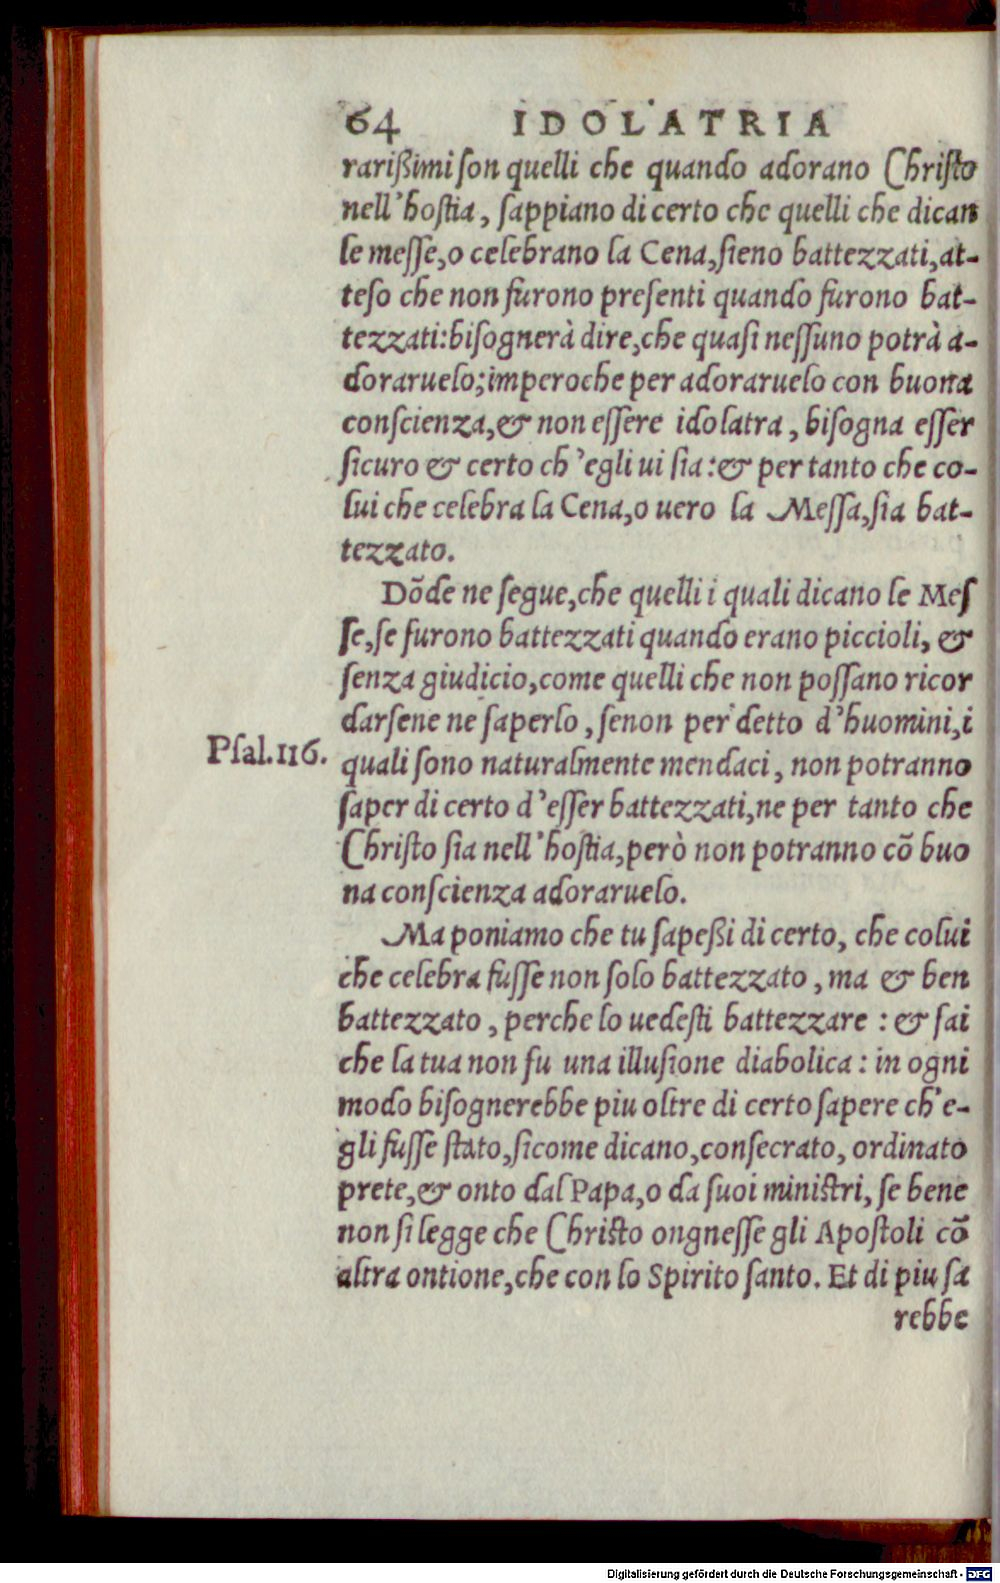 64 IDOLATRIA
rarißimi ſon quelli che quando adorano Chriſto
nell'hoſtia, ſappiano di certo che quelli che dican
le meſſe, o celebrano la Cena, ſieno battezzati, at-
teſo che non furono preſenti quando furono bat-
tezzati: biſognerà dire, che quaſi neſſuno potrà a-
doraruelo; imperoche per adoraruelo con buona
conſcienza, & non eſſere idolatra, biſogna eſſer
ſicuro & certo ch'egli ui ſia: & per tanto che co-
lui che celebra la Cena, o uero la Meſſa, ſia bat-
tezzato.
Dõde ne ſegue, che quelli i quali dicano le Meſ
ſe, ſe furono battezzati quando erano piccioli, &
ſenza giudicio, come quelli che non poſſano ricor
darſene ne ſaperlo, ſenon per detto d'huomini, i
Pſal. 116.
quali ſono naturalmente mendaci, non potranno
ſaper di certo d'eſſer battezzati, ne per tanto che
Chriſto ſia nell'hoſtia, però non potranno cõ buo
na conſcienza adoraruelo.
Ma poniamo che tu ſapeßi di certo, che colui
che celebra fuſſe non ſolo battezzato, ma & ben
battezzato, perche lo uedeſti battezzare: & ſai
che la tua non fu una illuſione diabolica: in ogni
modo biſognerebbe piu oltre di certo ſapere ch'e-
gli fuſſe ſtato, ſicome dicano, conſecrato, ordinato
prete, & onto dal Papa, o da ſuoi miniſtri, ſe bene
non ſi legge che Chriſto ongneſſe gli Apoſtoli cõ
altra ontione, che con lo Spirito ſanto. Et di piu ſa
rebbe
Digitalisierung gefördert durch die Deutsche Forschungsgemeinschaft - DFG